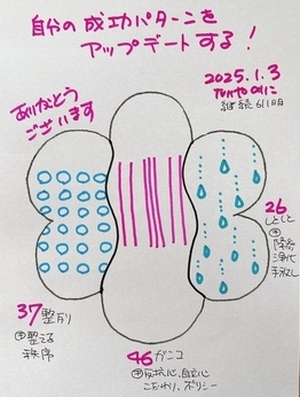 自分の成功パターンを
アップデートする!
2025.1.3
継続611日目
ありがとう
ございます
26
しとしと
浄化
手放し
37 整列
整える
秩序
46 ガンコ
反抗心、自立心
こだわり、ポリシー